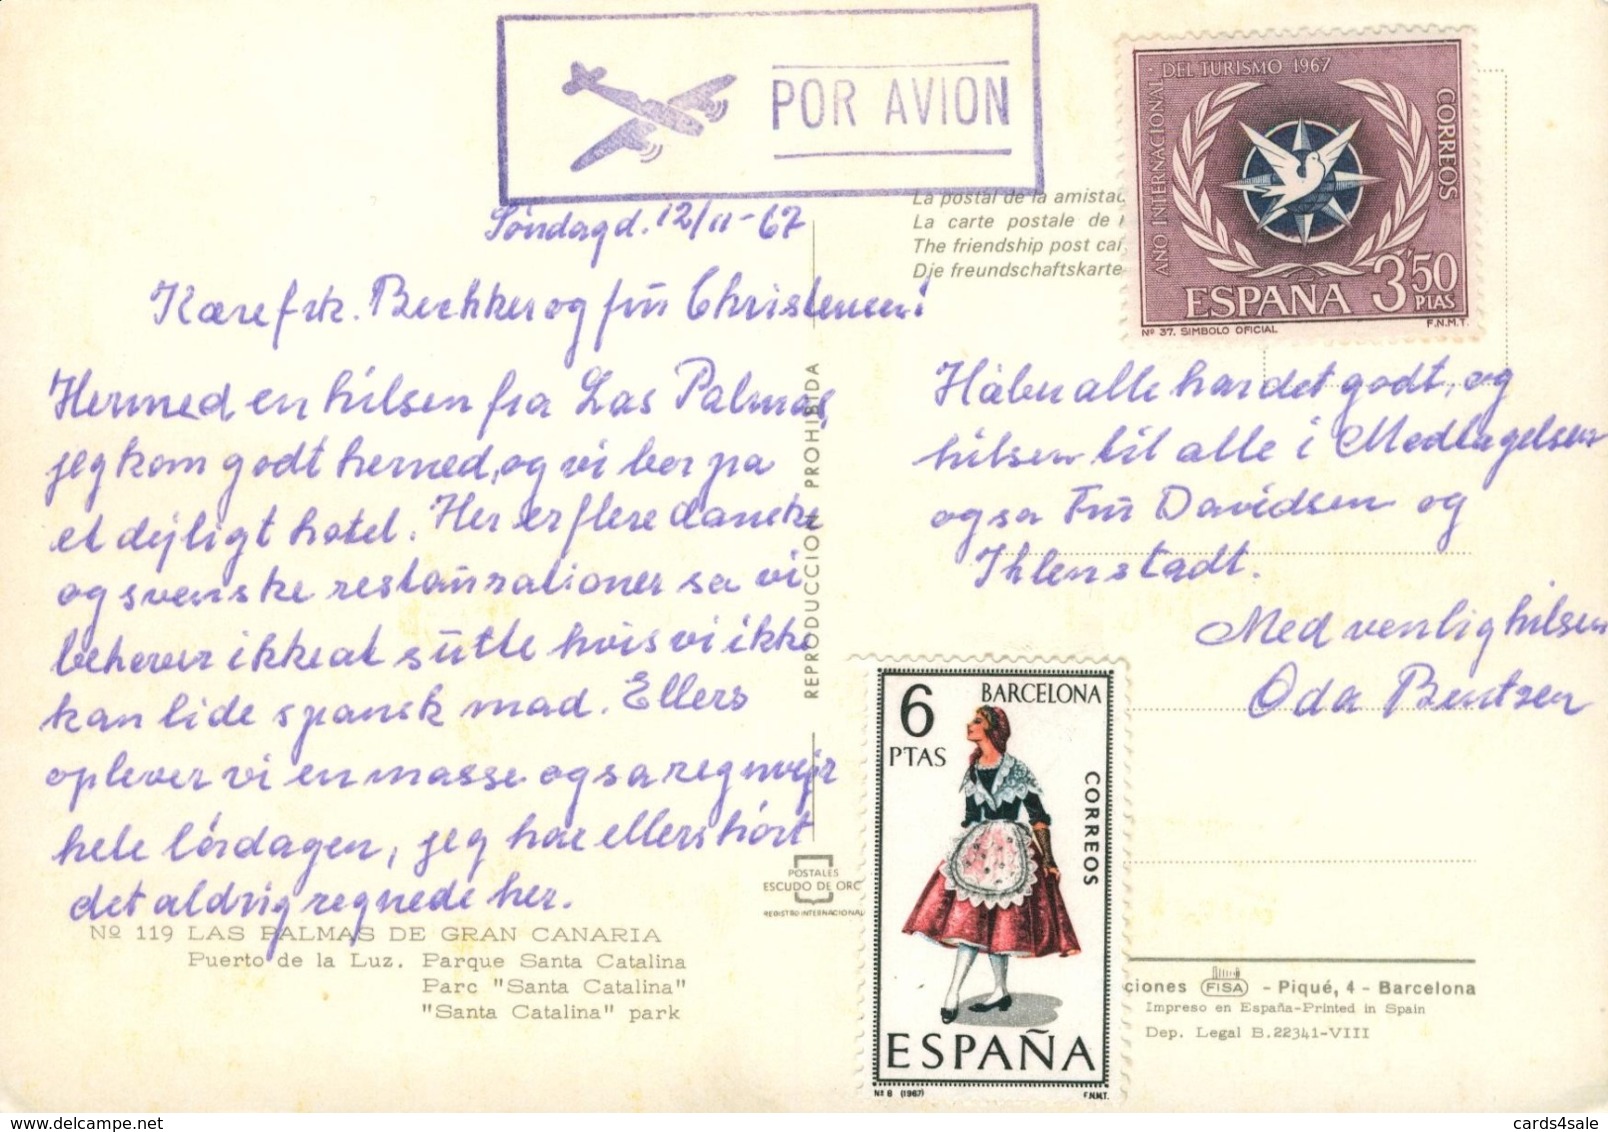 POR AVION
Søndag d. 12/11-67
Kære frk. Bekker og frú Christensen!
Hermed en hilsen fra Las Palmas
jeg kom godt herned, og vi bor pa
et dejligt hotel. Her er flere danske
og svenske restaúrationer sa vi
behøver ikke at súlte hvis vi ikke
kan lide spansk mad. Ellers
oplever vi en masse ogsa regnvejr
hele lørdagen, jeg har ellers hørt
det aldrig regnede her.
Nº 119 LAS PALMAS DE GRAN CANARIA
Puerto de la Luz. Parque Santa Catalina
Parc "Santa Catalina"
"Santa Catalina" park
REPRODUCCION PROHIBIDA
POSTALES
ESCUDO DE ORO
REGISTRO INTERNACIONAL
La postal de la amistad
La carte postale de
The friendship post car
Dje freundschaftskarte
AÑO INTERNACIONAL DEL TURISMO 1967
CORREOS
ESPAÑA 3'50
PTAS
Nº 37. SIMBOLO OFICIAL F.N.M.T.
Håber alle har det godt, og
hilsen til alle i Medtagelsen
ogsa Frú Davidsen og
Ihlenstadt.
Med venlig hilsen
Oda Bentzen
6
PTAS
BARCELONA
CORREOS
ESPAÑA
Nº 8 (1967) F.N.M.T.
ciones FISA - Piqué, 4 - Barcelona
Impreso en España-Printed in Spain
Dep. Legal B.22341-VIII
cards4sale